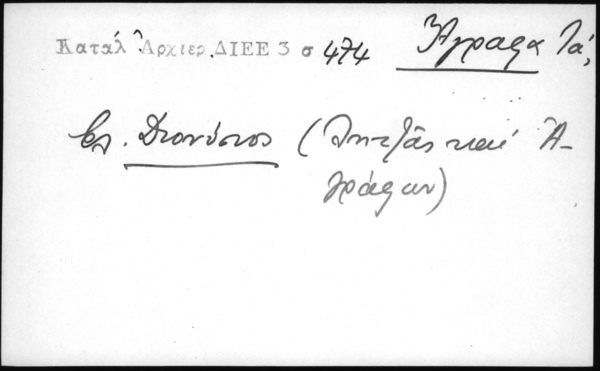 Κατάλ Ἀρχιερ. ΔΙΕΕ 3 σ 474 Ἄγραφα Τά,
Διονύσιος (Λητζᾶς καί Ἀ-
γράφων)